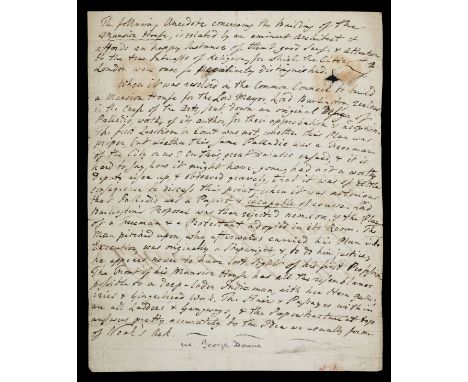 The following Anecdote concerning the Building of the
Mansion House, is related by an eminent Architect &
affords an happy Instance of that good Sense & attention
to the true Interests of Religion, for which the Citizens of
London were once so peculiarly distinguished.
When it was resolved in the Common Council to build
a Mansion House for the Lord Mayor, Lord Burlington zealous
in the Cause of the Arts, sent down an original Design of
Palladio, worthy of its author, for their approbation & adoption.
The first Question in Court was not, whether this Plan was
proper, but whether this same Palladio was a Freeman
of the City or no? On this, great Debates ensued, & it is
hard to say how it might have gone, had not a worthy
Deputy risen up, & observed gravely, that it was of little
consequence to discuss this point, when it was notorious
that Palladio was a Papist, & incapable of course. Lord
Burlington's Proposal was then rejected nem. con. & the Plan
of a Freeman & a Protestant adopted in its Room. The
Man pitched upon, who afterwards carried his Plan into
Execution was originally a Shipwright, & to do him justice,
he appears never to have lost Sight of his first Profession.
The Front of his Mansion House has all the resemblance
possible to a deep-laden Indiaman, with her Stern Galle-
ries & Gingerbread Work. The Stairs & Passages within
are all Ladders & Gangways, & the Superstructure at top
answers pretty accurately to the Idea we usually form
of Noah's Ark.
George Dance